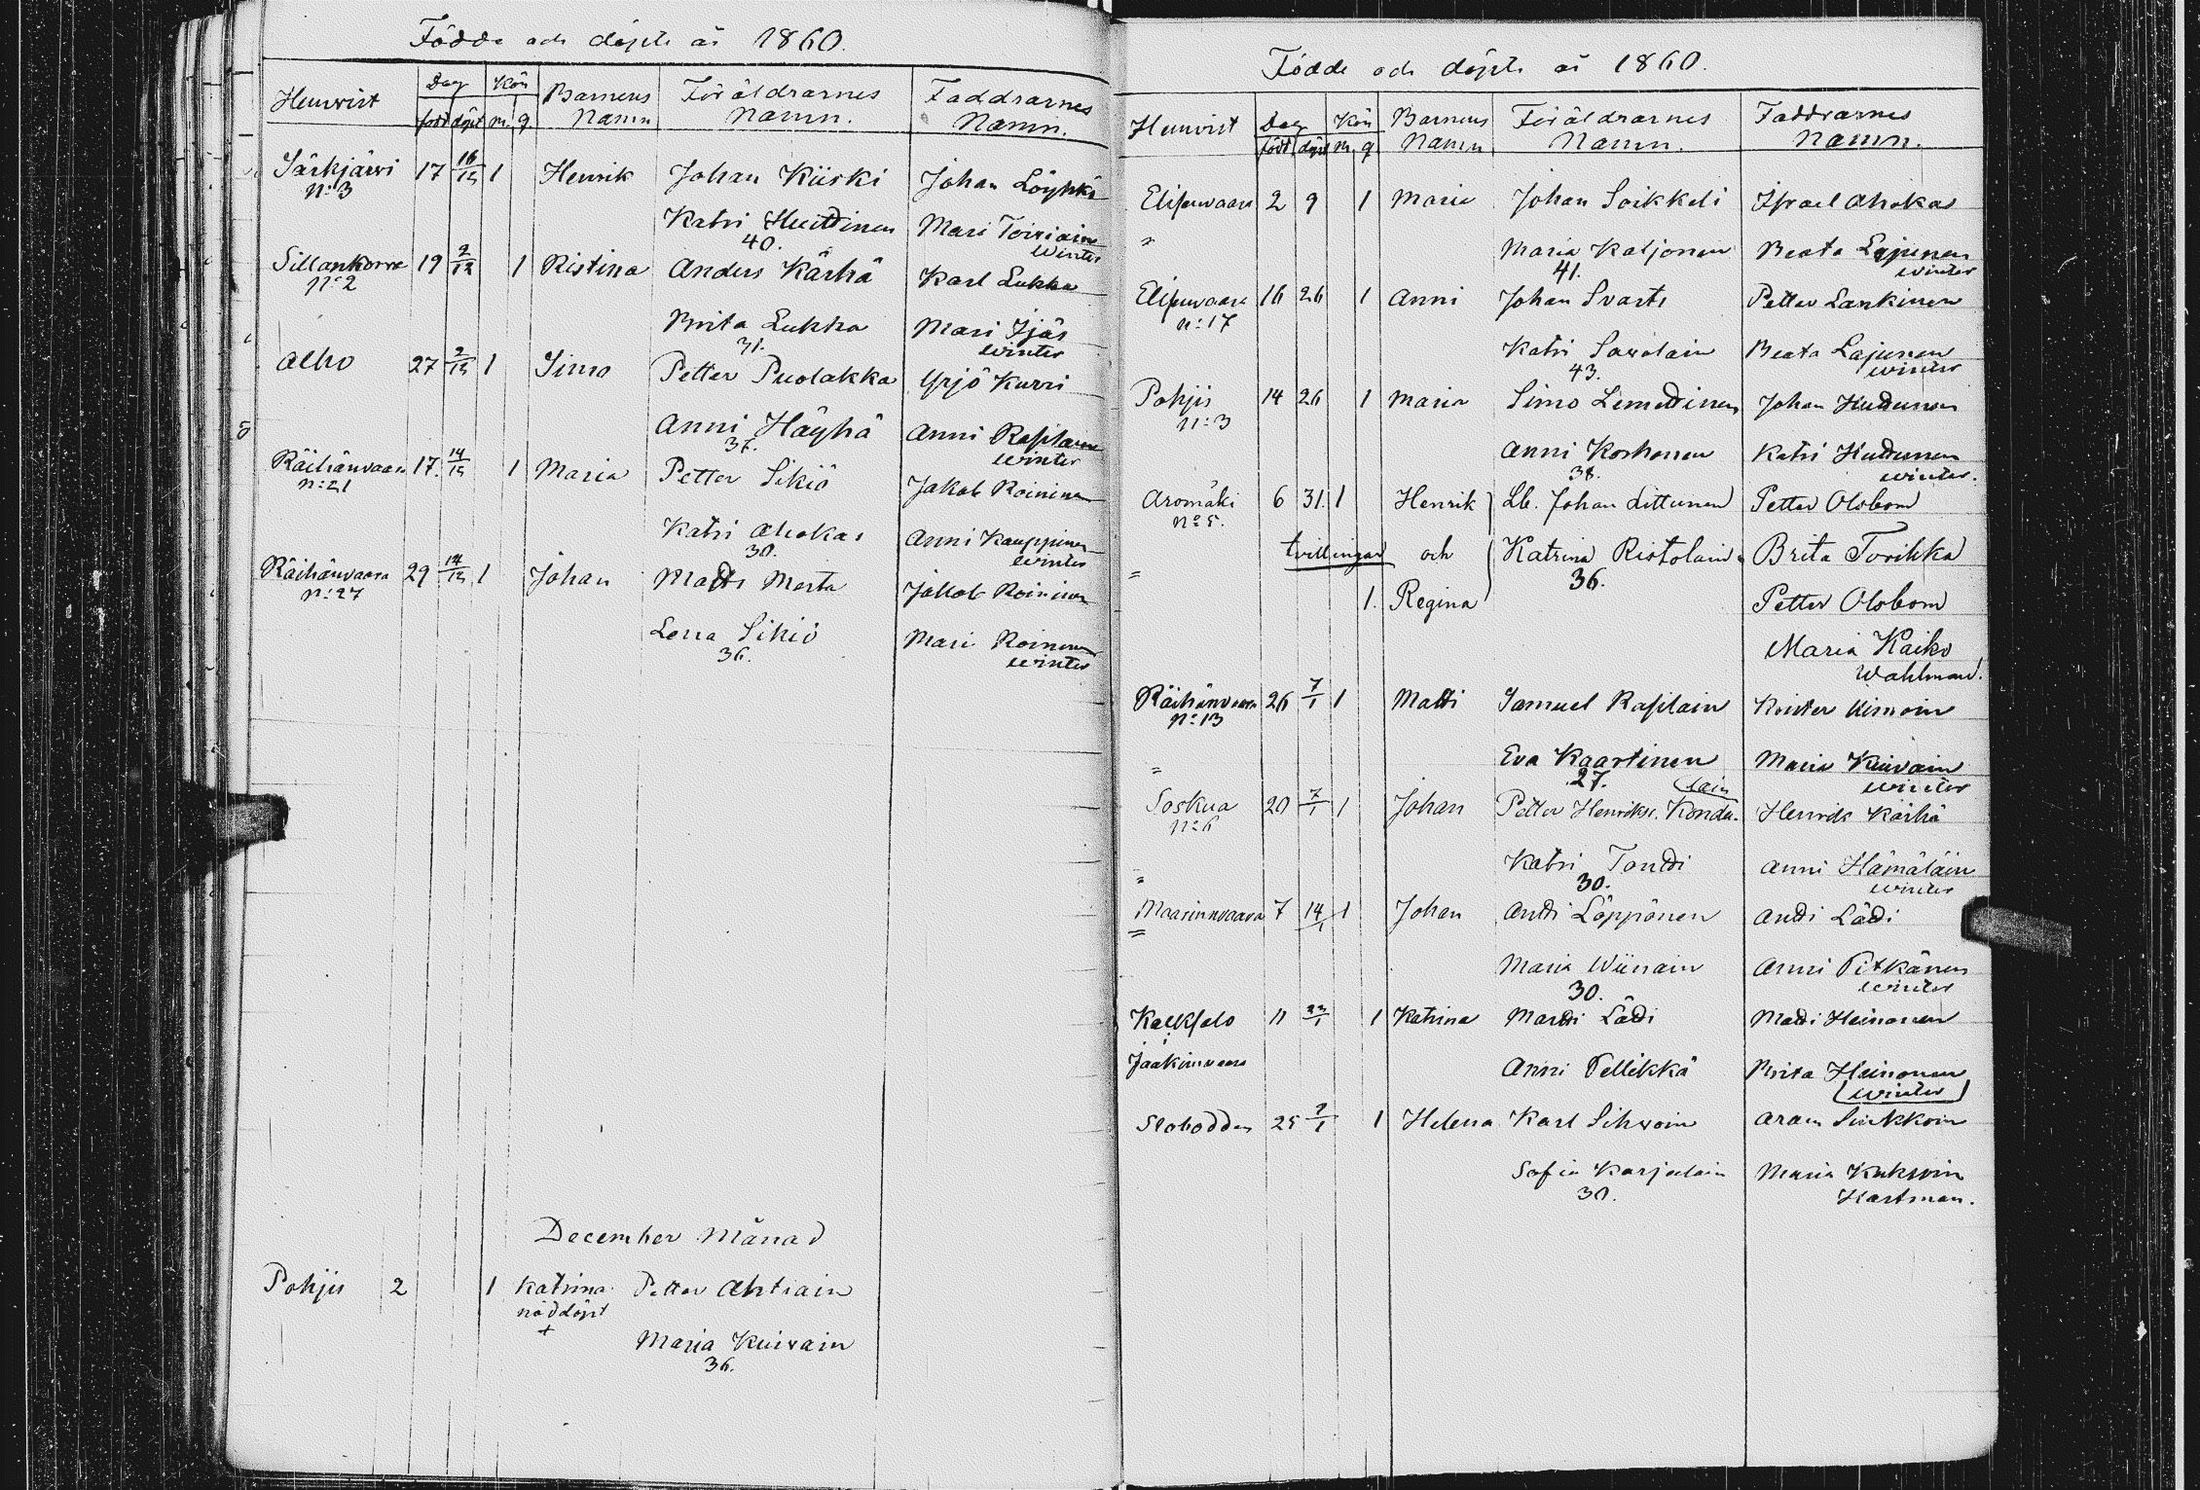 Födde och döpte år 1860.
Hemvist Dag Kön Barnens Namn Föräldrarnes Namn. Faddrarnes Namn.
född döpt m. q.
Särkjärvi 17 16/12 1 Henrik Johan Kiiski Johan Löyhkö
N:3
Katri Huttinen Mari Toiviain
40. Winter
Sillankorva 19 2/12 1 Ristina Anders Kärhä Karl Lukka
N:2
Brita Lukka Mari Ijäs
31. Winter
Alho 27 2/12 1 Simo Petter Puolakka Yrjö Kurri
Anni Häyhä Anni Rapilain
Winter
Räihänvaara 17. 14/12 1 Maria Petter Sikiö Jakob Roininen
n:21
Katri Ahokas Anni Kauppinen
30. Winter
Räihänvaara 29 14/12 1 Johan Matts Masta Jakob Roininen
n:27
Lena Sikiö Mari Roinonen
36. Winter
December Månad
Pohjis 2 1 Katrina Petter Ahtiain
nöddöpt
+
Maria Kuivain
36.
Födde och döpte år 1860.
Hemvist Dag Kön Barnens Namn Föräldrarnes Namn. Faddrarnes Namn.
född döpt m. q.
Elisenvaara 2 9 1 Maria Johan Soikkeli Israel Ahokas
" Maria Katjonen Beata Lajunen
41. Winter
Elisenvaara 16 26 1 Anni Johan Svarts Petter Lankinen
n:17
Katri Savolain Beata Lajunen
43. Winter
Pohjis 14 26 1 Maria Simo Lemettinen Johan Huttunen
N:3
Anni Korhonen Katri Huttunen
38. Winter.
Aromäki 6 31. 1 Henrik Lb. Johan Littunen Petter Olsbom
No 5.
tvillingar och Katrina Ristolain Brita Torikka
= 36.
1. Regina Petter Olsbom
Maria Kaiko
Wahlman.
Räihänvaara 26 7/1 1 Matti Samuel Rapilain Krister
No 13
= Eva Kaartinen Maria Kuivain
27. Winter
lain
Soskua 20 7/1 1 Johan Petter Henriks. Kondu- Henrik Kärhä
No 6
= Katri Tontti Anni Hämäläin
30. Winter
Maarinvaara 7 14/1 1 Johan Antti Löppönen Antti Lätti
=
Maria Wiinain Anni Pitkänen
30. Winter
Kalksalo 11 23/1 1 Katrina Martti Lätti Matti Heinonen
i
Jaakimvaara Anni Pellikkä Brita Heinonen
Winter
Slobodden 25 7/1 1 Helena Karl Sihvoin Aram Sinkkoin
Sofia Karjalain Maria Kukkoin
30. Hartman.